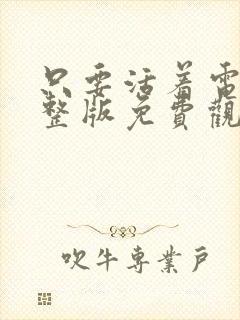 只要活着電
整版免費觀
吹牛専業戶